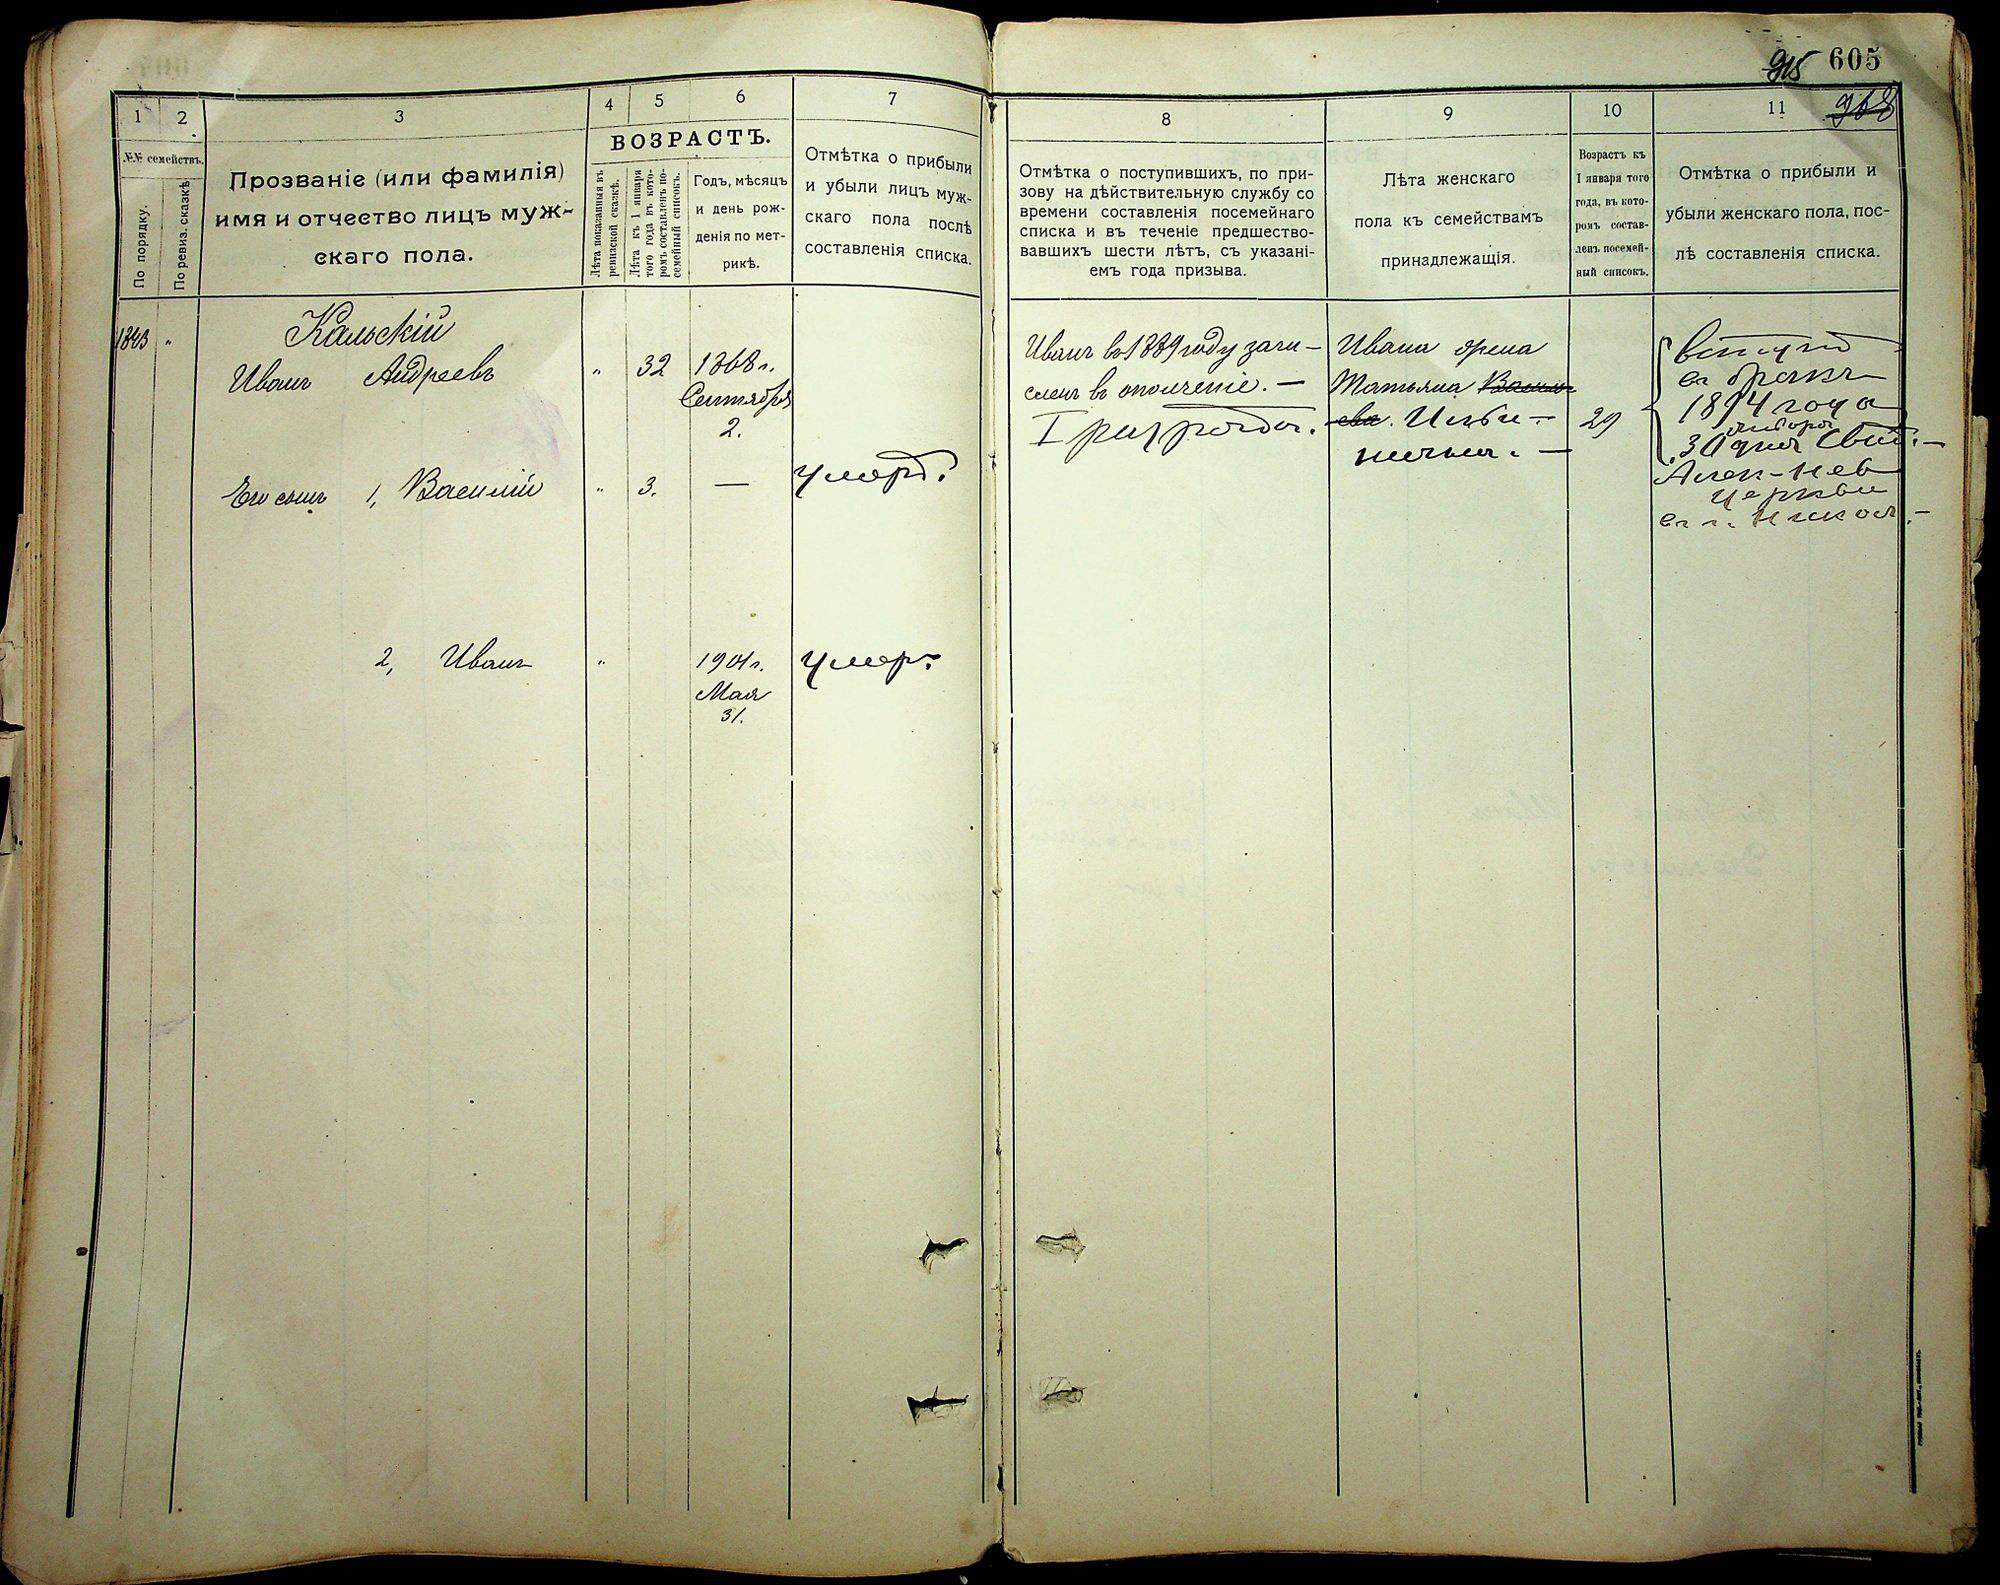 915 605
968
1
2
3
4
5
6
7
№№ семействъ.
По порядку.
По ревиз. сказкѣ
Прозваніе (или фамилія)
имя и отчество лицъ муж-
скаго пола.
ВОЗРАСТЪ.
Лѣта показанныя въ
ревизской сказкѣ.
Лѣта къ 1 января
того года въ кото-
ромъ составленъ по-
семейный списокъ.
Годъ, мѣсяцъ
и день рож-
денія по мет-
рикѣ.
Отмѣтка о прибыли
и убыли лицъ муж-
скаго пола послѣ
составленія списка.
8
9
10
11
Отмѣтка о поступившихъ, по при-
зову на дѣйствительную службу со
времени составленія посемейнаго
списка и въ теченіе предшество-
вавшихъ шести лѣтъ, съ указані-
емъ года призыва.
Лѣта женскаго
пола къ семействамъ
принадлежащія.
Возрастъ къ
1 января того
года, въ кото-
ромъ состав-
ленъ посемей-
ный списокъ.
Отмѣтка о прибыли и
убыли женскаго пола, пос-
лѣ составленія списка.
1843 „
Кальскій
Иванъ Андреевъ „ 32 1868 г.
Сентября
2.
Его сынъ 1, Василій „ 3. — умеръ.
2, Иванъ „ 1901 г. умеръ.
Мая
31.
Иванъ въ 1889 году зачи-
сленъ въ ополченіе. —
I разряда.
Ивана жена
Татьяна Василь-
ева. Ильи-
нична. —
29
вступ.
въ бракъ
1894 года
октября
30 дня Свят. —
Алек-Нев
церкви
въ г. Никол. —